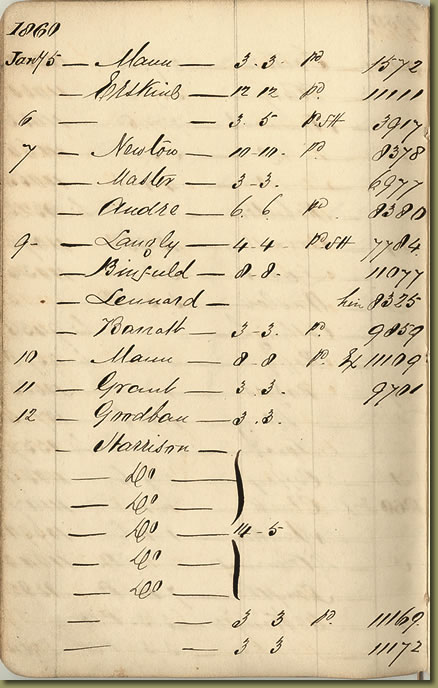 1860
Jany 5 — Mann — 3. 3. pd 1572
— Erskine — 12 12 pd. 11111
6 — — 3. 5 Pd SH 3917
7 — Newton — 10 - 10 - pd 8378
— Master — 3 - 3. 6977
— Andre — 6. 6. pd 8380
9 - — Langly — 4 - 4 - Pd SH 7784
— Bingfield — 8 - 8 - 11077
— Lennard — 8325
— Barratt — 3 - 3. pd. 9859
10 — Mann — 8 - 8 pd. Ex 11109
11 — Grant — 3. 3. 9701
12 — Goodban — 3. 3.
— Harrison —
— Do —
— Do —
— Do — 14 - 5
— Do —
— Do —
— — 3 3 pd. 11169
— — 3 3 11172